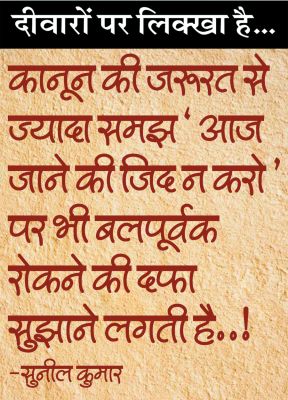 दीवारों पर लिक्खा है...
कानून की जरूरत से
ज्यादा समझ ‘ आज
जाने की जिद न करो ’
पर भी बलपूर्वक
रोकने की दफा
सुझाने लगती है..!
-सुनील कुमार